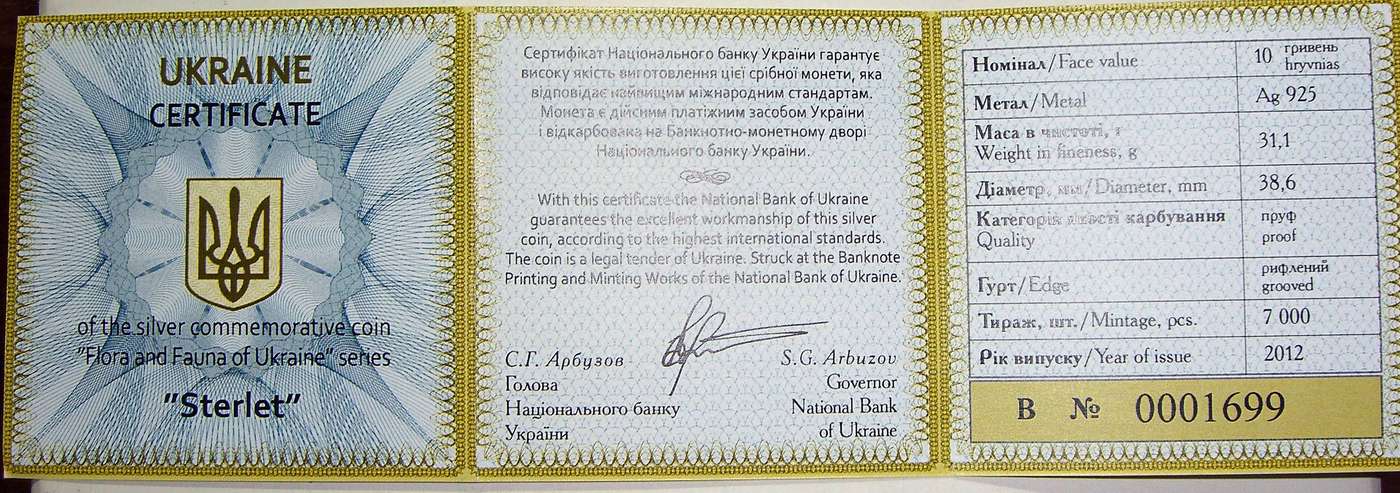 UKRAINE
CERTIFICATE
of the silver commemorative coin
"Flora and Fauna of Ukraine" series
"Sterlet"
Сертифікат Національного банку України гарантує
високу якість виготовлення цієї срібної монети, яка
відповідає найвищим міжнародним стандартам.
Монета є дійсним платіжним засобом України
і відкарбована на Банкнотно-монетному дворі
Національного банку України.
With this certificate the National Bank of Ukraine
guarantees the excellent workmanship of this silver
coin, according to the highest international standards.
The coin is a legal tender of Ukraine. Struck at the Banknote
Printing and Minting Works of the National Bank of Ukraine.
С.Г. Арбузов
Голова
Національного банку
України
S.G. Arbuzov
Governor
National Bank
of Ukraine
Номінал/Face value 10 гривень hryvnias
Метал/Metal Ag 925
Маса в чистоті, г
Weight in fineness, g 31,1
Діаметр, мм/Diameter, mm 38,6
Категорія якості карбування пруф
Quality proof
Гурт/Edge рифлений grooved
Тираж, шт./Mintage, pcs. 7 000
Рік випуску/Year of issue 2012
В № 0001699